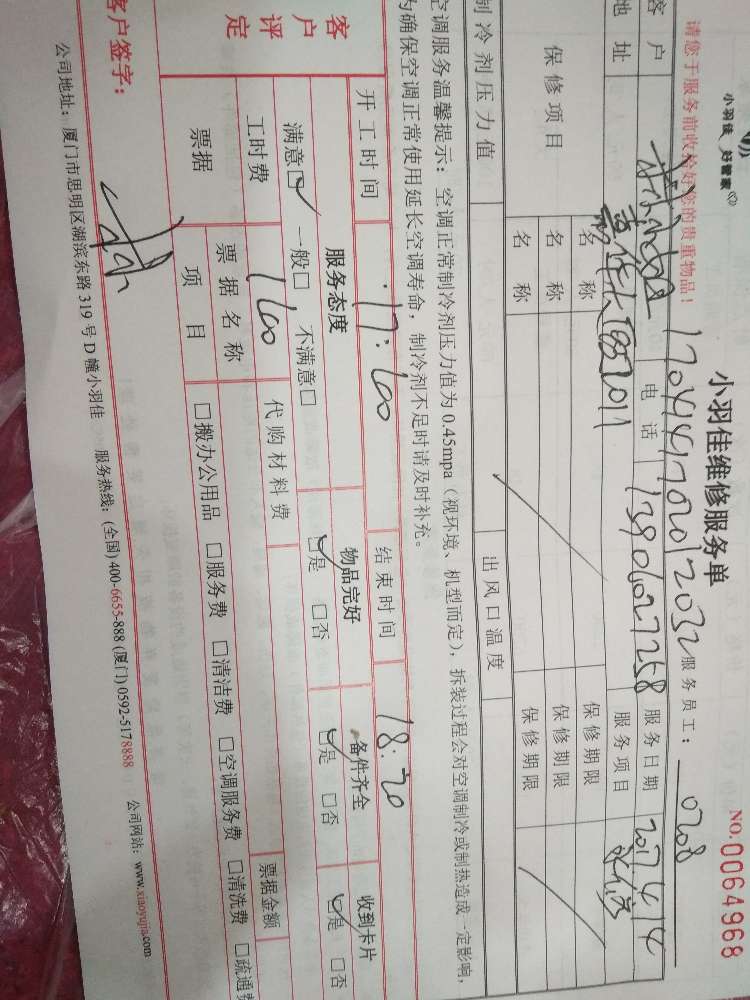 小羽佳 好管家
小羽佳维修服务单
NO.0064968
请您于服务前收拾好您的贵重物品！
1704141702012032
服务员工：
0208
客户
电话
13906027258
服务日期
2017 4 14
地址
服务项目
保修项目
名称
保修期限
名称
保修期限
名称
保修期限
制冷剂压力值
出风口温度
空调服务温馨提示：空调正常制冷剂压力值为 0.45mpa（视环境、机型而定），拆装过程会对空调制冷或制热造成一定影响，
为确保空调正常使用延长空调寿命，制冷剂不足时请及时补充。
开工时间
17:00
结束时间
18:20
客户评定
服务态度
物品完好
备件齐全
收到卡片
满意☑ 一般□ 不满意□
☑是 □否
☑是 □否
☑是 □否
工时费
160
代购材料费
票据
票据名称
票据金额
项目
□搬办公用品 □服务费 □清洁费 □空调服务费 □清洗费 □疏通费
客户签字：
公司地址：厦门市思明区湖滨东路 319 号 D 幢小羽佳 服务热线：(全国) 400-6655-888 (厦门) 0592-5178888 公司网站：www.xiaoyujia.com